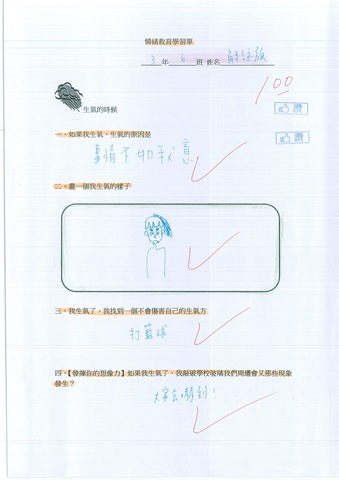 情緒教育學習單
3 年 6 班 姓名
100
生氣的時候
讚
一、如果我生氣，生氣的原因是
讚
事情不如我意
二、畫一個我生氣的樣子
三、我生氣了，我找到一個不會傷害自己的生氣方
打籃球
四、【發揮你的想像力】如果我生氣了，我敲破學校玻璃我們周遭會又那些現象
發生？
大家會嚇到！